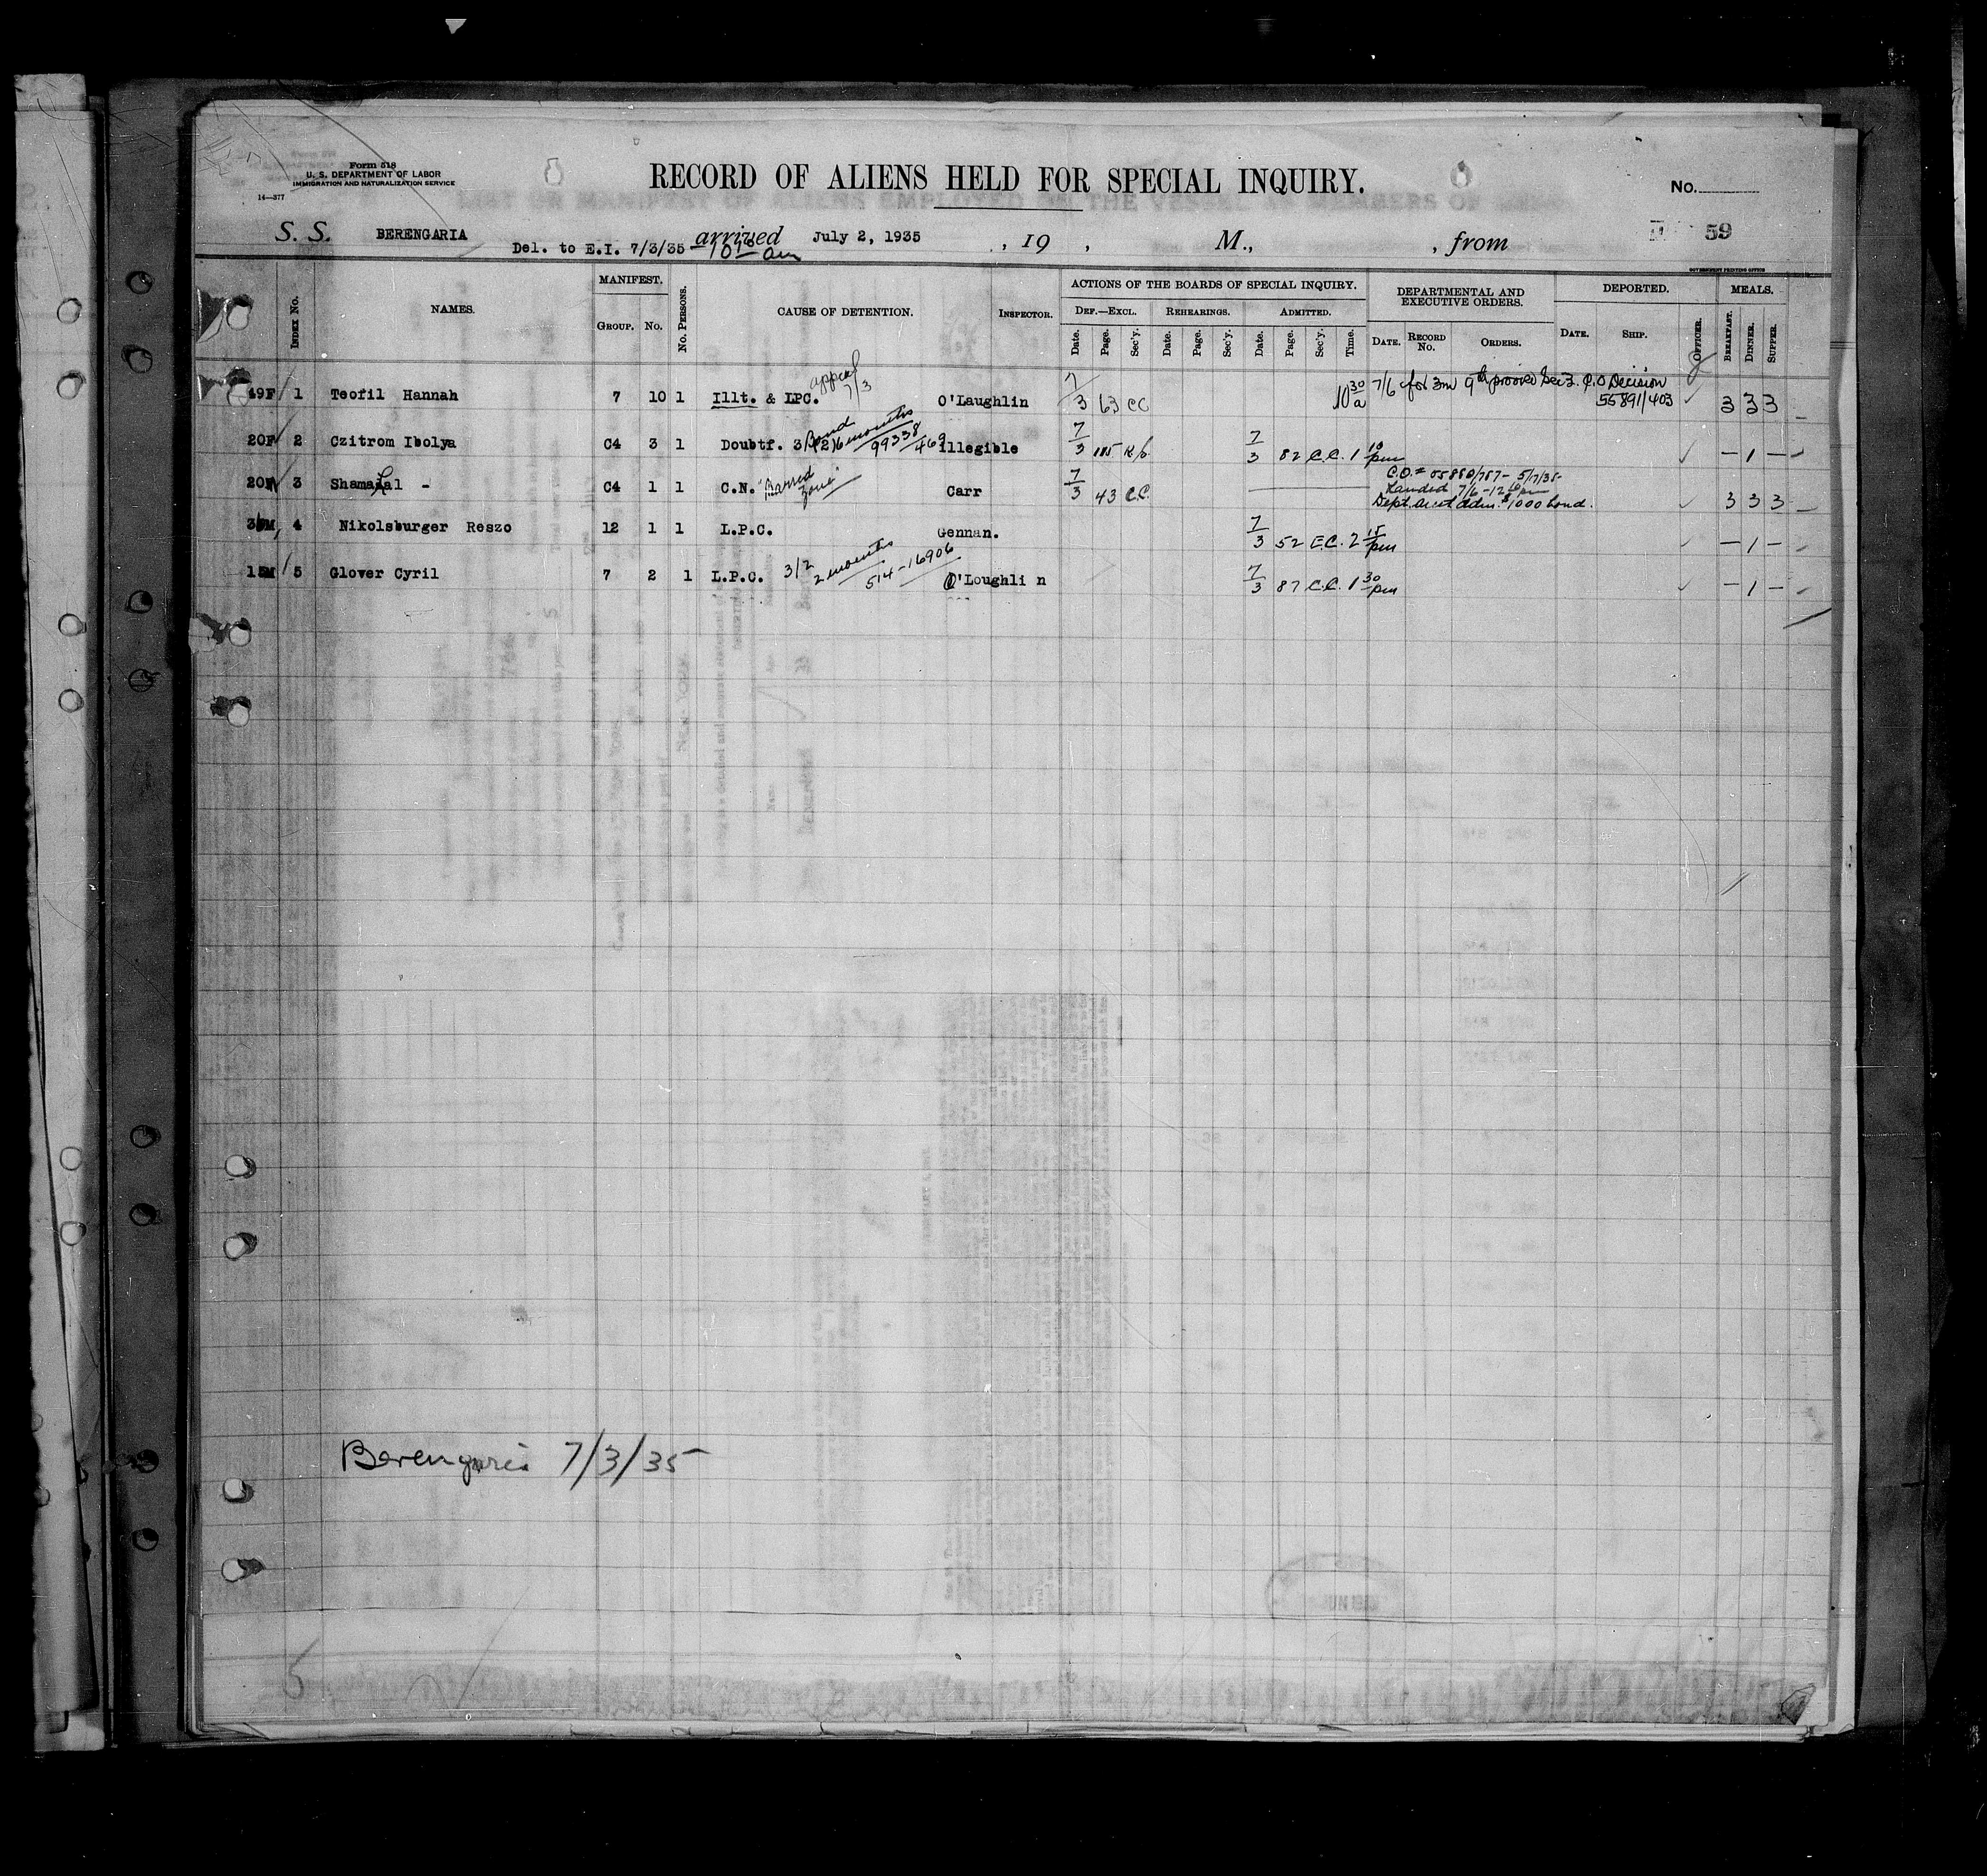 Form 518
U. S. DEPARTMENT OF LABOR
IMMIGRATION AND NATURALIZATION SERVICE
14—377
RECORD OF ALIENS HELD FOR SPECIAL INQUIRY.
No.
59
S. S. BERENGARIA arrived July 2, 1935 , 19 , M., , from
Del. to E.I. 7/3/35
GOVERNMENT PRINTING OFFICE
INDEX No. NAMES. MANIFEST. GROUP. No. No. PERSONS. CAUSE OF DETENTION. INSPECTOR. ACTIONS OF THE BOARDS OF SPECIAL INQUIRY. DEPARTMENTAL AND EXECUTIVE ORDERS. DEPORTED. OFFICER. MEALS.
DEF.—EXCL. REHEARINGS. ADMITTED.
Date. Page. Sec'y. Date. Page. Sec'y. Date. Page. Sec'y. Time. DATE. RECORD No. ORDERS. DATE. SHIP. BREAKFAST. DINNER. SUPPER.
49F 1 Teofil Hannah 7 10 1 Illt. & LPC. appeal 7/3 O'Laughlin 7/3 63 CC 10 30 a 7/6 for 3m 9th proviso Sec 3. C.O Decision 55891/403 3 3 3
20F 2 Czitrom Ibolya C4 3 1 Doubtf. Bond 6 months 99338/469 illegible 7/3 7/3 82 C.C. 1 10 pm — 1 —
3 Shamalal - C4 1 1 C.N. "Barred zone" Carr 7/3 43 C.C. C.O. # 55880/787 - 5/17/35-
Landed 7/6 - 12
Dept. direct adm. $1000 bond. 3 3 3
4 Nikolsburger Reszo 12 1 1 L.P.C. Gennan. 7/3 52 E.C. 2 15 pm — 1 —
15M 5 Glover Cyril 7 2 1 L.P.C. 3/2 2 months 514-16906 O'Loughli n 7/3 87 C.C. 1 30 pm — 1 —
Berengaria 7/3/35